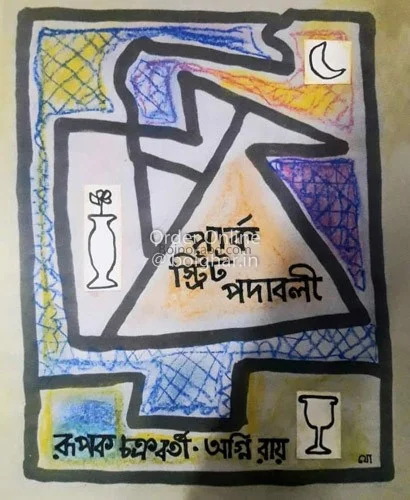 Order Online
পার্ক
@boighar.in
স্ট্রিট
পদাবলী
রূপক চক্রবর্তী · অগ্নি রায়